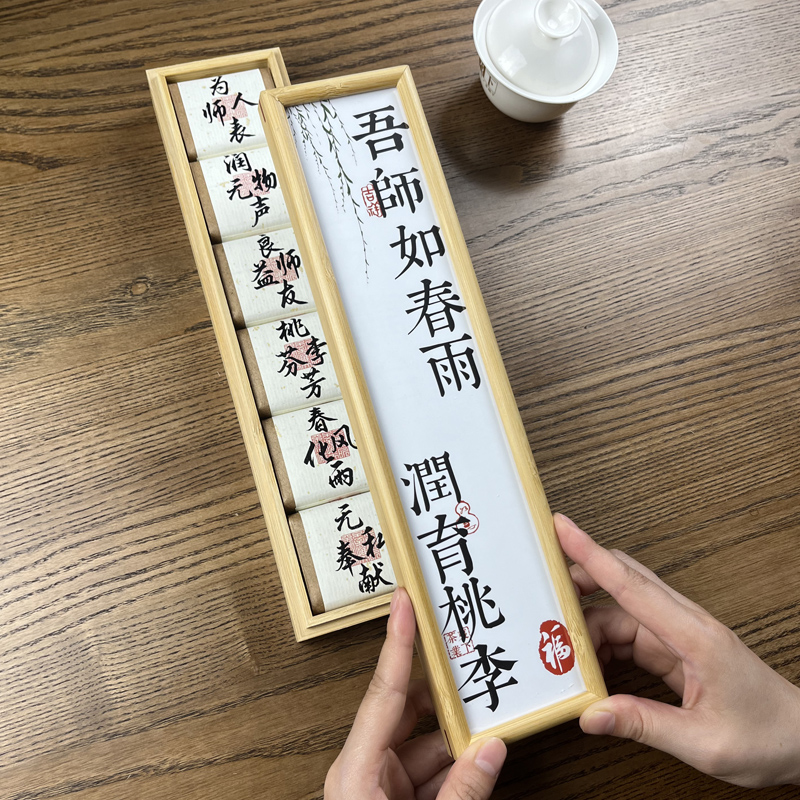 吾師如春雨
潤育桃李
吉祥
福
为人师表
润物无声
良师益友
桃李芬芳
春风化雨
无私奉献